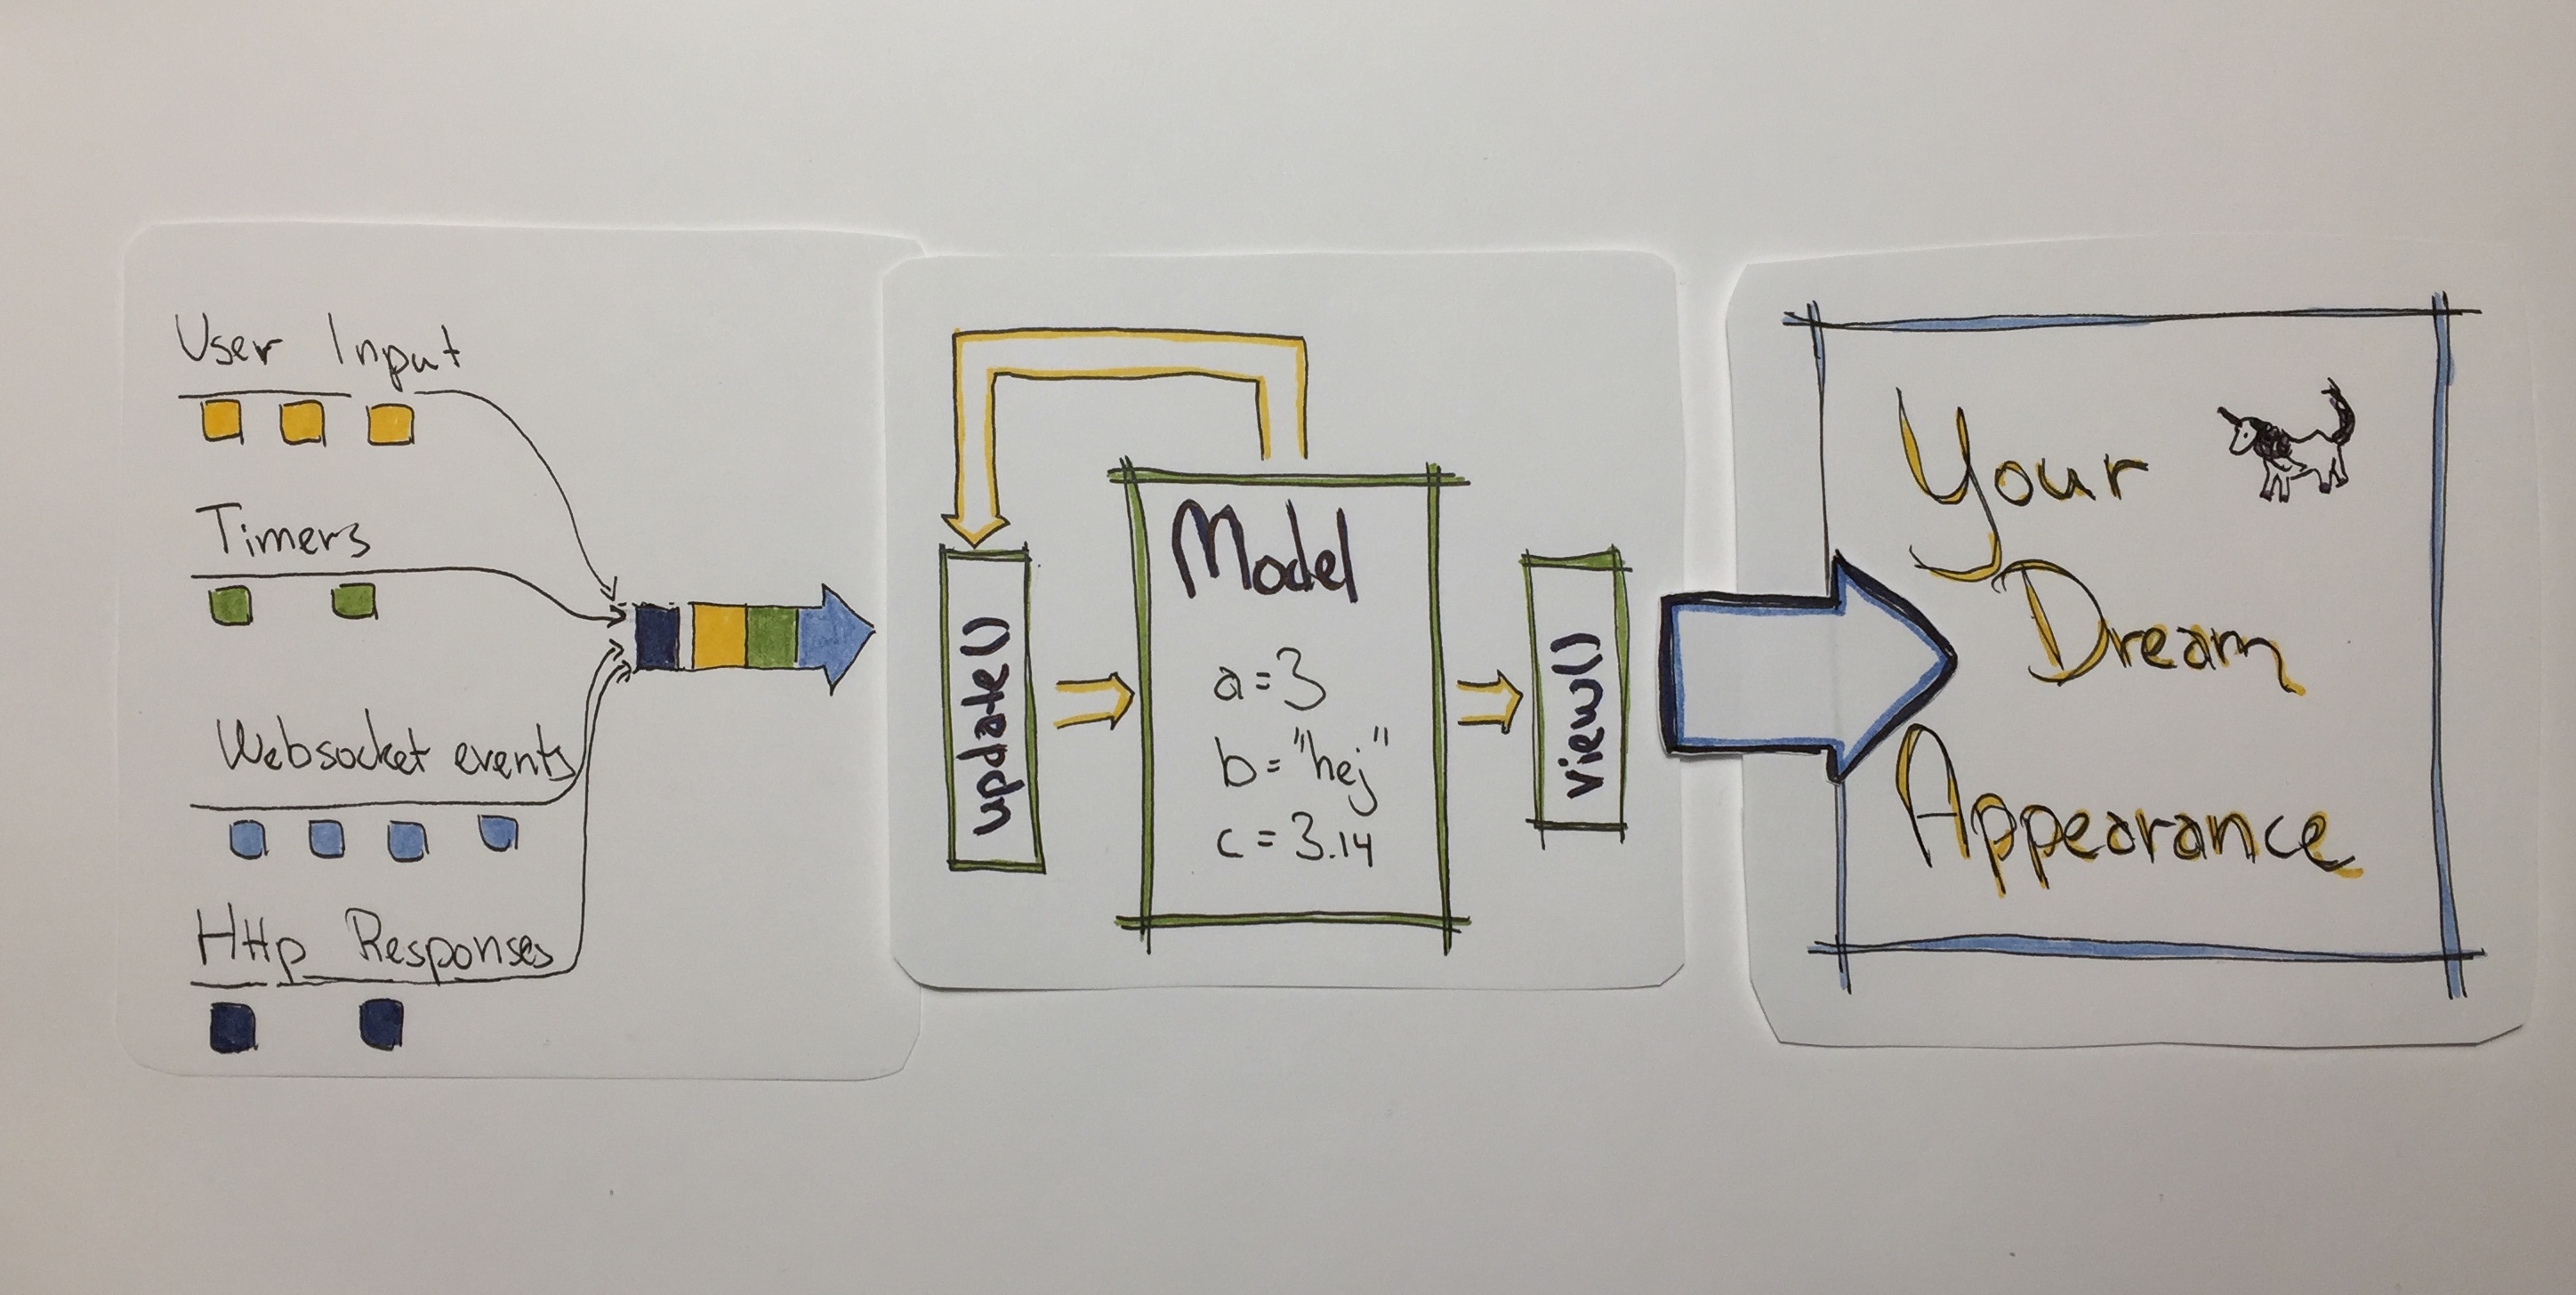 User Input
Timers
Websocket events
Http Responses
update()
Model
a=3
b="hej"
c=3.14
view()
Your
Dream
Appearance